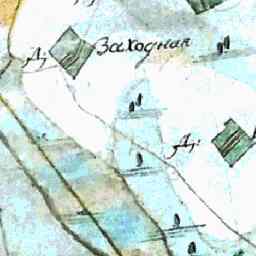 Д: Заходная
Д: